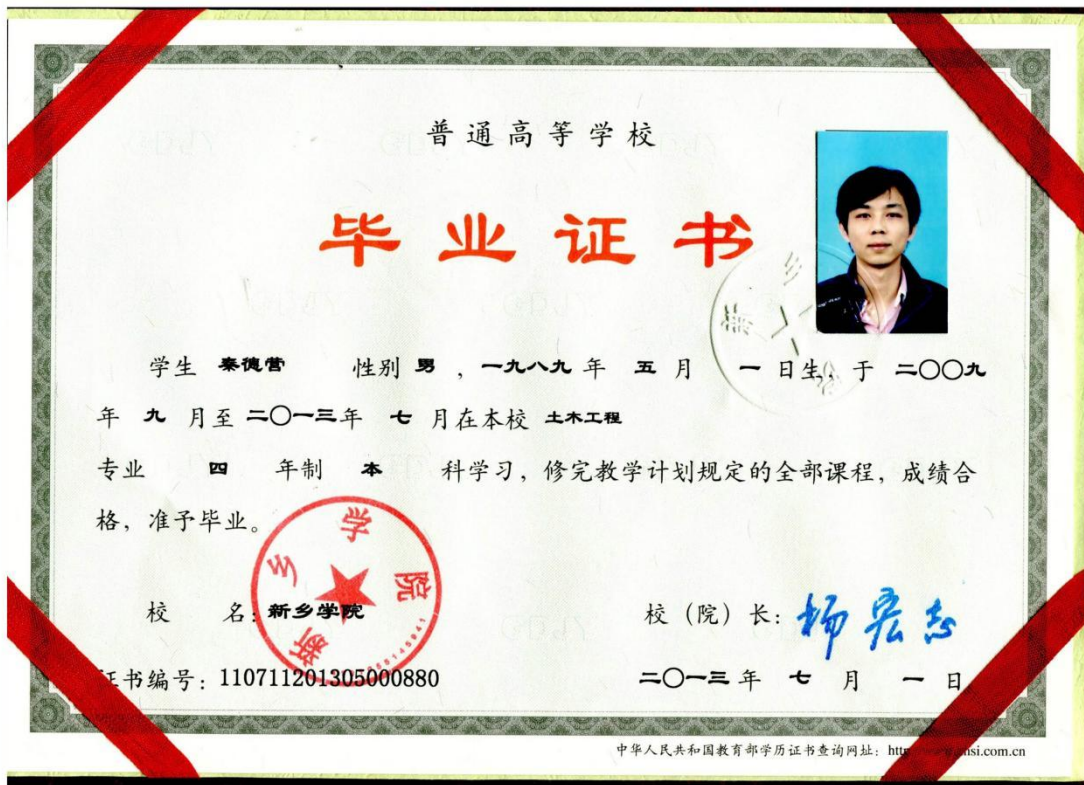 普通高等学校
毕业证书
学生 秦德营 性别 男 ，一九八九 年 五 月 一 日生，于 二〇〇九
年 九 月至 二〇一三年 七 月在本校 土木工程
专业 四 年制 本 科学习，修完教学计划规定的全部课程，成绩合
格，准予毕业。
新乡学院
校 名：新乡学院
校（院）长：杨宏志
证书编号：110711201305000880
二〇一三 年 七 月 一 日
中华人民共和国教育部学历证书查询网址：http
si.com.cn